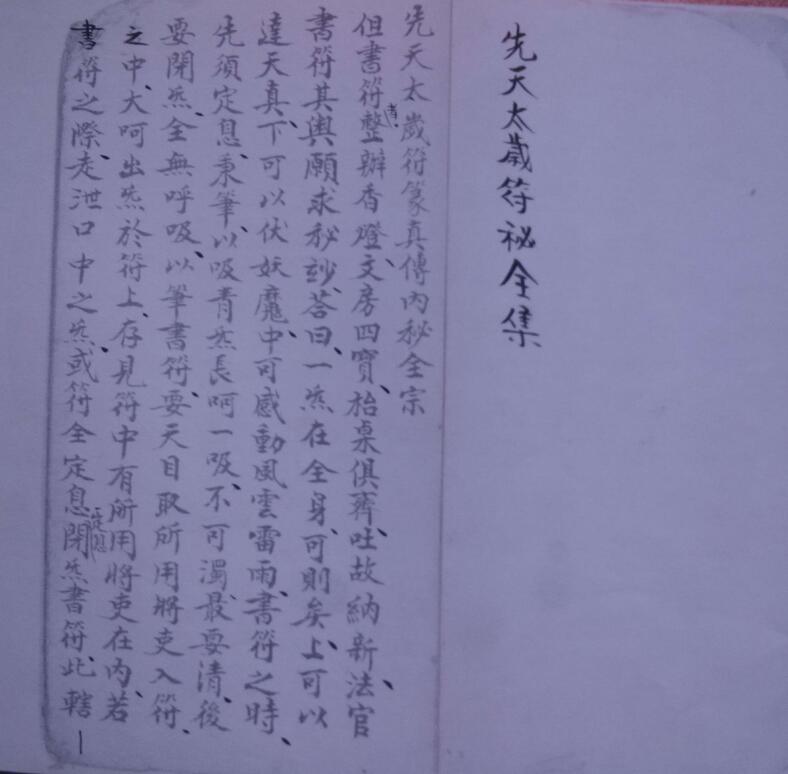 先天太歲符秘全集
先天太歲符篆真傳內秘全宗
但書符者、整辦香燈、文房四寶、枱桌俱齊、吐故納新、法官
書符其與願求秘玅、荅曰、一炁在全身、可則矣、上可以
達天真、下可以伏妖魔、中可感動風雲雷雨、書符之時、
先須定息、秉筆、以吸青炁長呵一吸、不可濁、最要清、後
要閉炁、全無呼吸、以筆書符、要天目取所用將吏入符、
之中、大呵出炁於符上、存見符中有所用將吏在內、若
書符之際、走泄口中之炁、或符全定息定息閉炁書符、此轄